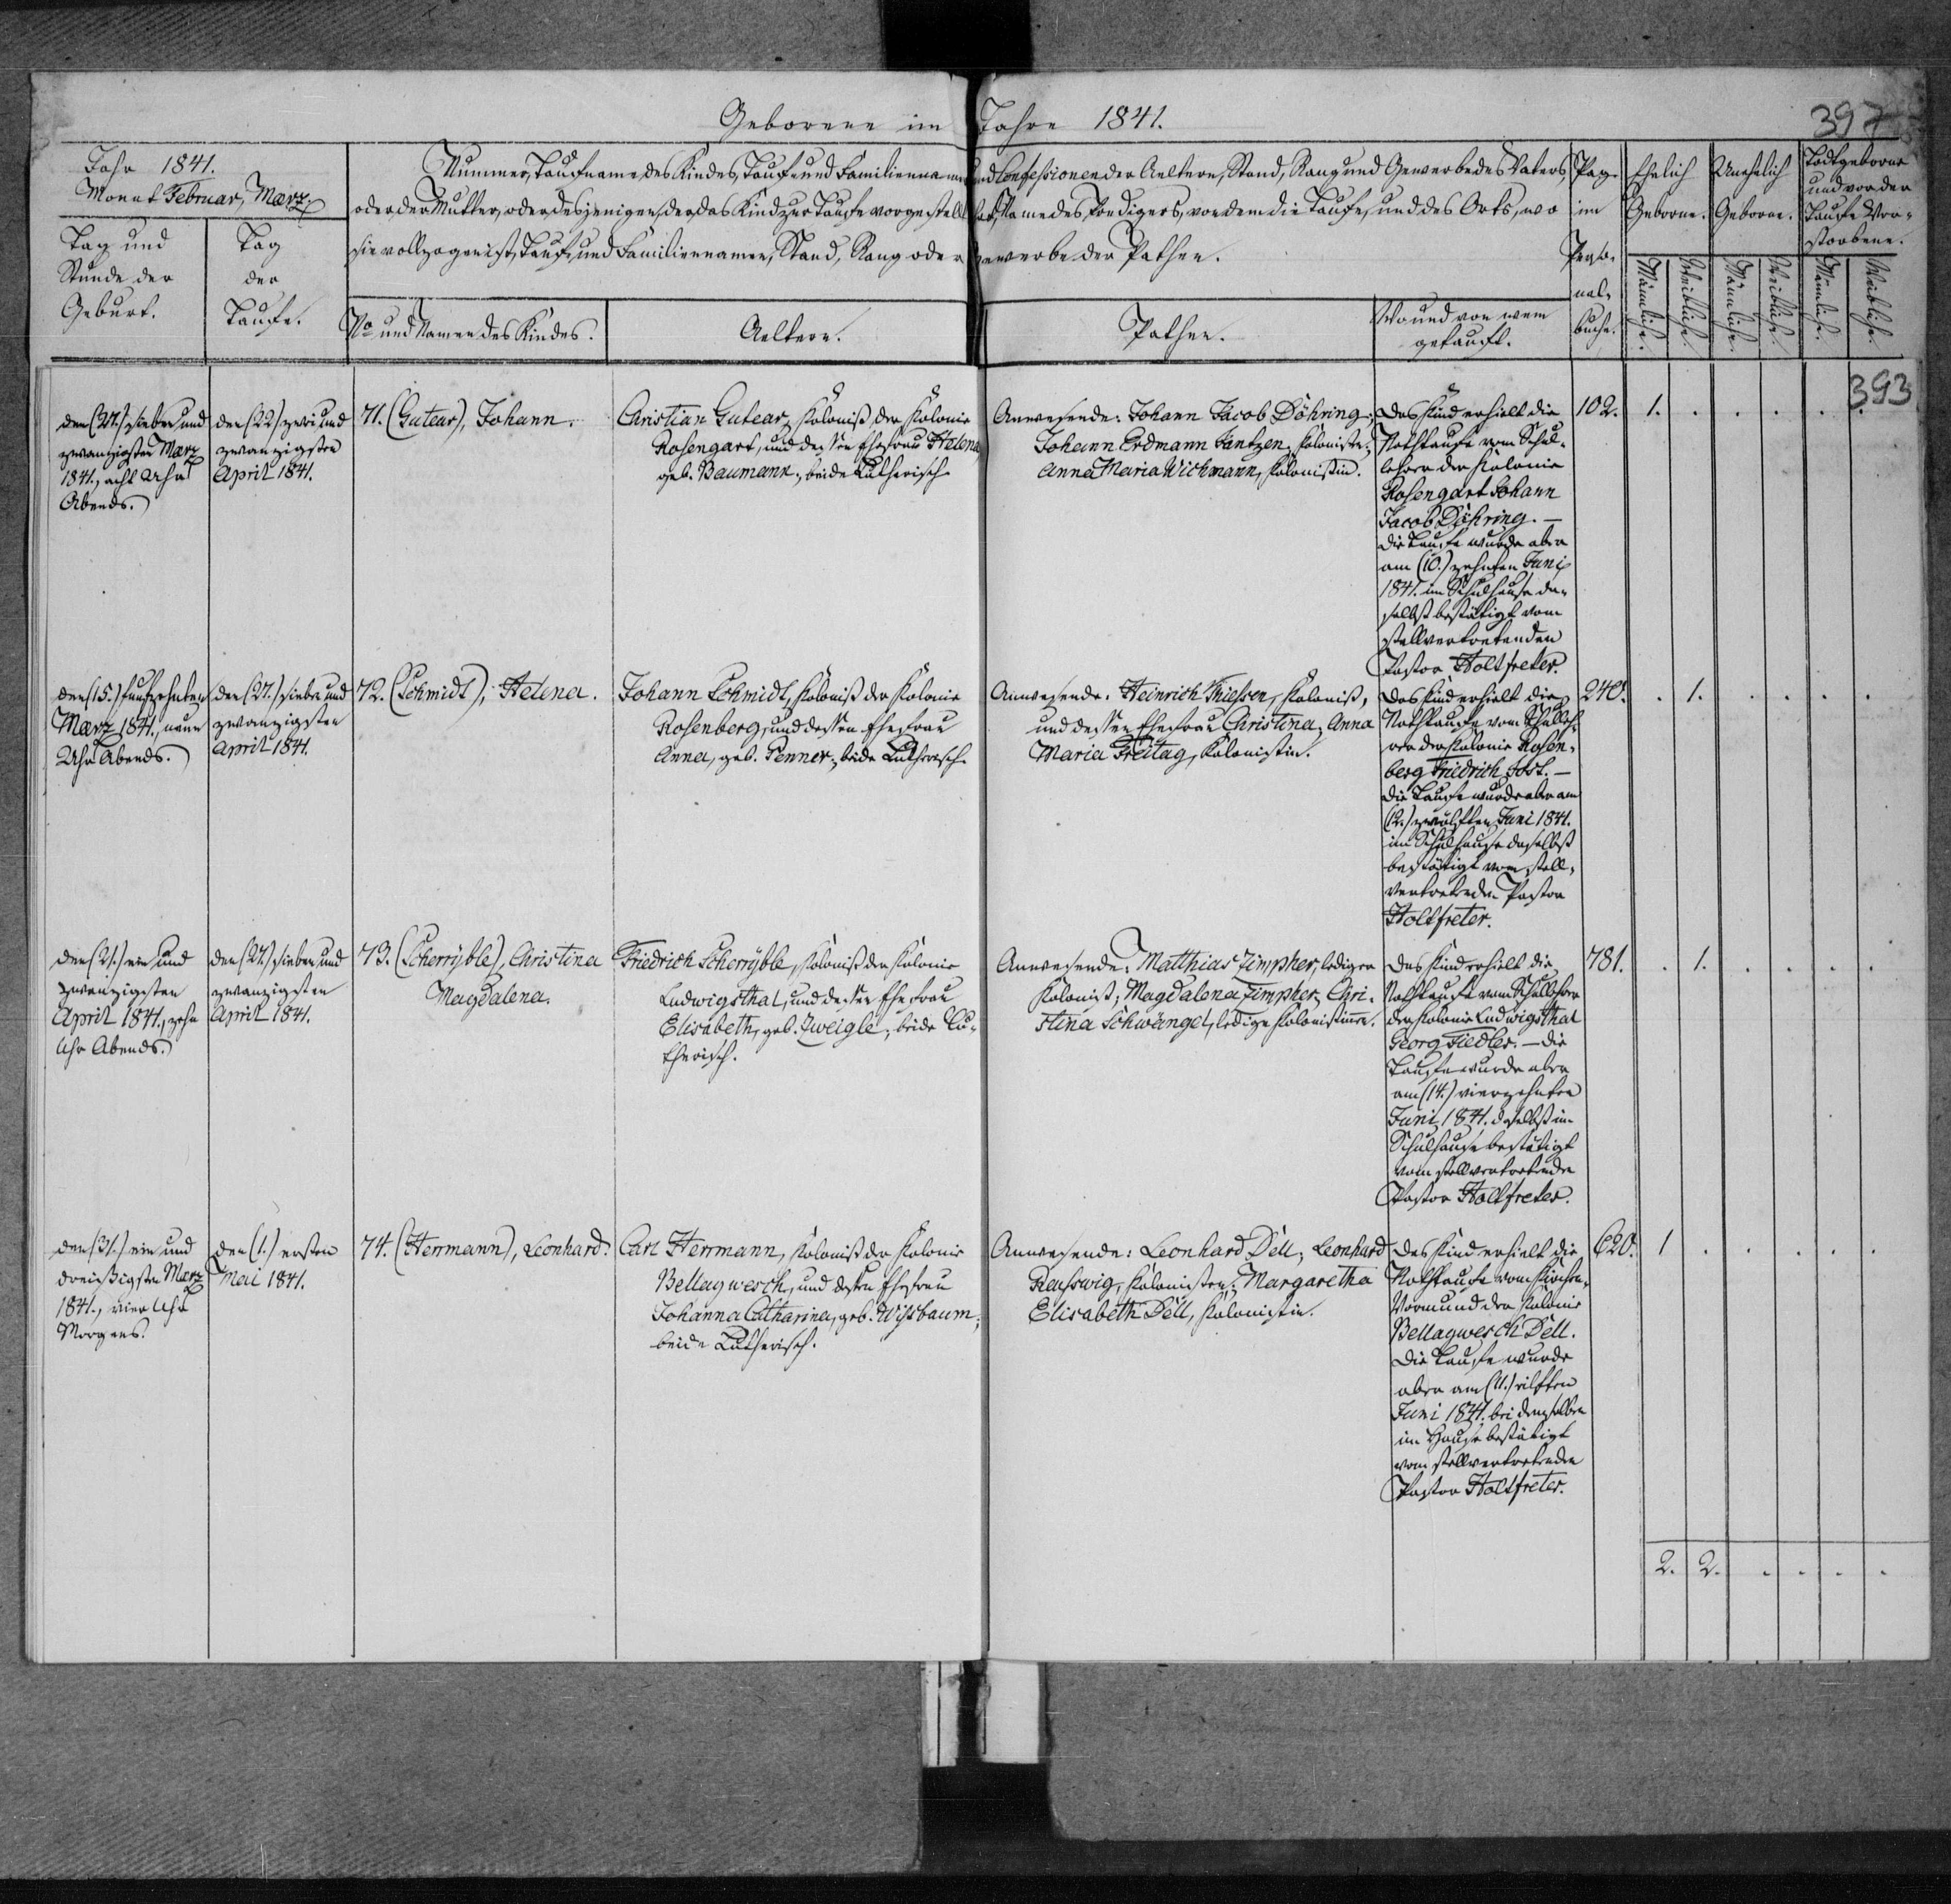 Geborene im Jahre 1841.
397
Jahr 1841.
Monat Februar, Maerz.
Nummer, Taufname des Kindes, Tauf- und Familiennamen und Confessionen der Aeltern, Stand, Rang und Gewerbe des Vaters,
oder der Mutter, oder desjenigen, der das Kind zur Taufe vorgestellt hat, Name des Predigers, von dem die Taufe, und des Orts, wo
sie vollzogen ist, Tauf- und Familiennamen, Stand, Rang oder Gewerbe der Pathen.
Tag und
Stunde der
Geburt.
Tag
der
Taufe.
No und Namen des Kindes.
Aeltern.
Pathen.
Wo und von wem
getauft.
Pag.
im
Perso-
nal-
buche.
Ehelich
Geborne.
Unehelich
Geborne.
Todtgeborne
und vor der
Taufe Ver-
storbene.
Männliche.
Weibliche.
Männliche.
Weibliche.
Männliche.
Weibliche.
393
den (27.) sieben und
zwanzigsten Maerz
1841., acht Uhr
Abends.
den (22.) zwei und
zwanzigsten
April 1841.
71. (Gutear), Johann.
Christian Gutear, Kolonist der Kolonie
Rosengart, und dessen Ehefrau Helena
geb. Baumann, beide Lutherisch.
Anwesende: Johann Jacob Döhring;
Johann Erdmann Jantzen, Kolonisten;
Anna Maria Wichmann, Kolonistin.
Das Kind erhielt die
Nothtaufe vom Schul-
lehrer der Kolonie
Rosengart Johann
Jacob Döhring. —
Die Taufe wurde aber
am (10.) zehnten Juni
1841. im Schulhause da-
selbst bestätigt vom
stellvertretenden
Pastor Holtfreter.
102.
1. . . . . .
den (15.) funfzehnten
Maerz 1841., neun
Uhr Abends.
den (27.) sieben und
zwanzigsten
April 1841.
72. (Schmidt), Helena.
Johann Schmidt, Kolonist der Kolonie
Rosenberg, und dessen Ehefrau
Anna, geb. Penner, beide Lutherisch.
Anwesende: Heinrich Thiessen, Kolonist,
und dessen Ehefrau Christina; Anna
Maria Freitag, Kolonistin.
Das Kind erhielt die
Nothtaufe vom Schulleh-
rer der Kolonie Rosen-
berg Friedrich Jost. —
Die Taufe wurde aber am
(12.) zwölften Juni 1841.
im Schulhause daselbst
bestätigt vom stell-
vertretenden Pastor
Holtfreter.
240.
. 1. . . . .
den (21.) ein und
zwanzigsten
April 1841., zehn
Uhr Abends.
den (27.) sieben und
zwanzigsten
April 1841.
73. (Scherryble), Christina
Magdalena.
Friedrich Scherryble, Kolonist der Kolonie
Ludwigsthal, und dessen Ehefrau
Elisabeth, geb. Zweigle, beide Lu-
therisch.
Anwesende: Matthias Zimpher, lediger
Kolonist; Magdalena Zimpher; Chri-
stina Schwängel, ledige Kolonistinnen.
Das Kind erhielt die
Nothtaufe vom Schullehrer
der Kolonie Ludwigsthal
Georg Fiedler. — Die
Taufe wurde aber
am (14.) vierzehnten
Juni 1841. daselbst im
Schulhause bestätigt
vom stellvertretenden
Pastor Holtfreter.
781.
. 1. . . . .
den (31.) ein und
dreißigsten Maerz
1841., vier Uhr
Morgens.
den (1.) ersten
Mai 1841.
74. (Herrmann), Leonhard.
Carl Herrmann, Kolonist der Kolonie
Bellagwesch, und dessen Ehefrau
Johanna Catharina, geb. Wissbaum;
beide Lutherisch.
Anwesende: Leonhard Dell; Leonhard
Kolonisten; Margaretha
Elisabeth Dell, Kolonistin.
Das Kind erhielt die
Nothtaufe vom Kirchen-
Vormund der Kolonie
Bellagwesch Dell.
Die Taufe wurde
aber am (11.) eilften
Juni 1841. bei demselben
im Hause bestätigt
vom stellvertretenden
Pastor Holtfreter.
620.
1 . . . . .
2. 2. . . . .